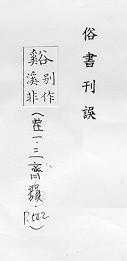 俗書刊誤
谿
谷別作溪非
(卷一·三齊韻,P.542)